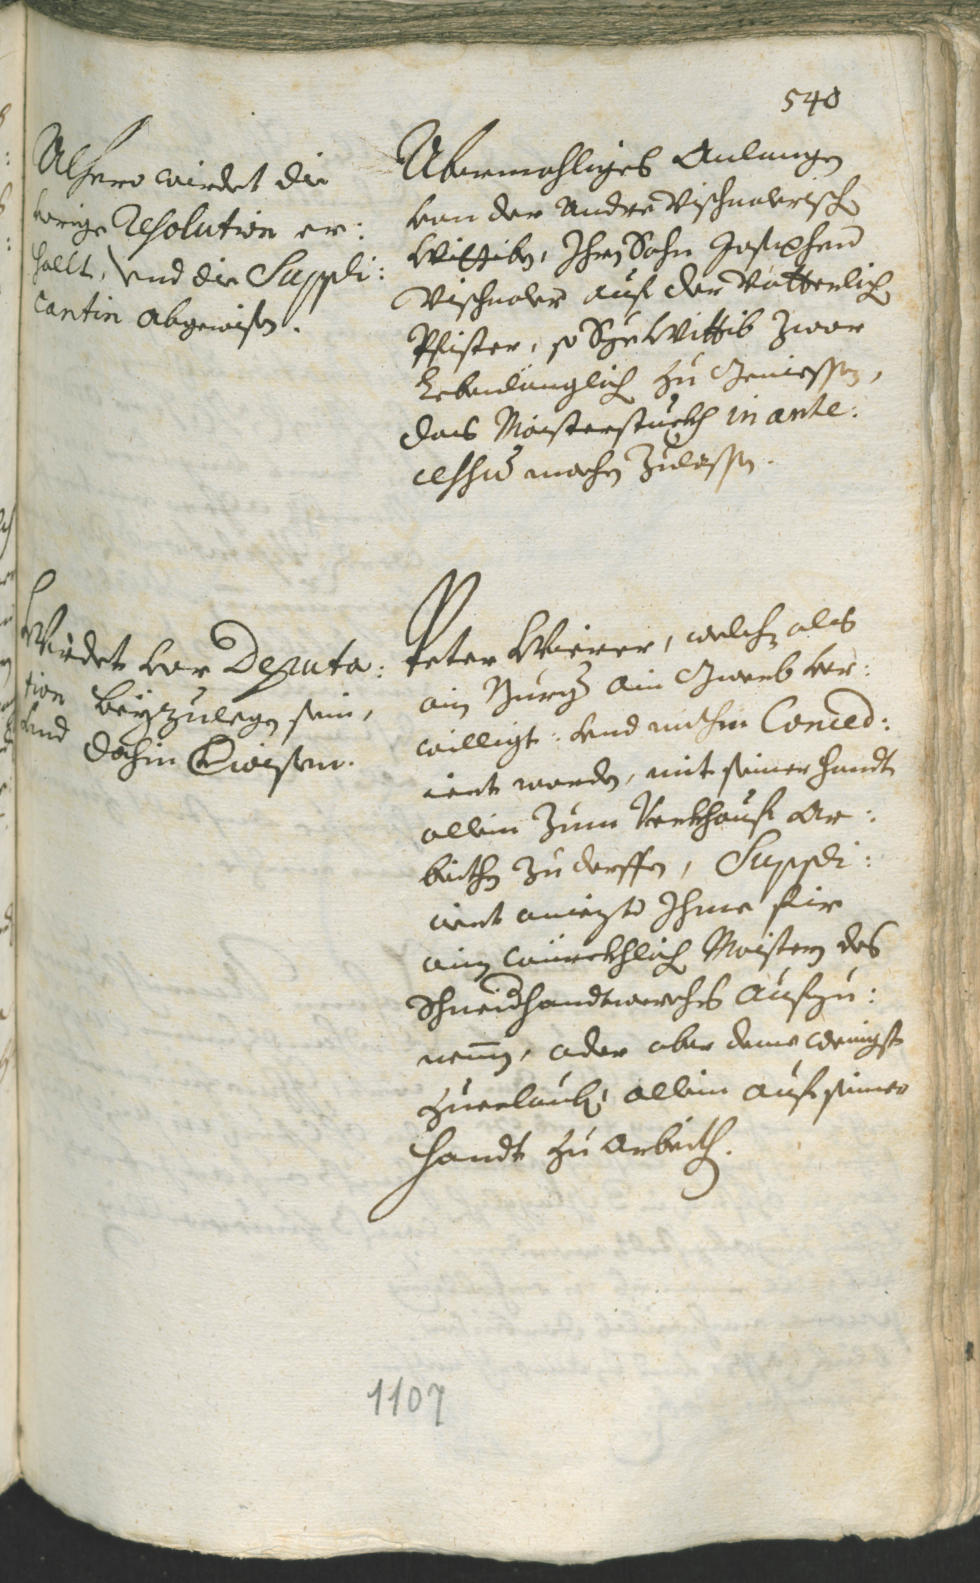 540
Alhero wirdet die
vorige Resolution er:
holt, und die Suppli:
cantin abgewisen.
Abermahliges Anlangen
von der Andre Vischnalerisch
Wittiben, Ihren Sohn Josephen
Vischnaler auf der Vätterlich
Pfister, so Sye Wittib zwar
Lebenlänglich zu Geniessen,
das Maisterstuckh in ante:
cessum machen Zulassen.
Wirdet vor Deputa:
tion beyzulegen sein,
und dahin Gwisen.
Peter Wierer, welcher als
ain Burger ain Gwerb ver:
willigt: und nachin Conced:
iert worden, mit seiner Handt
allein Zum Verkhauf Ar:
beithen zu derffen, Suppli:
ciert aniezo Ihme fir
ainen würckhlich Maistern des
Schneidhandtwerchs aufzu:
nemen, oder aber deme wenigst
Zuerlauben allein auf seiner
Handt zu Arbeithen.
1107